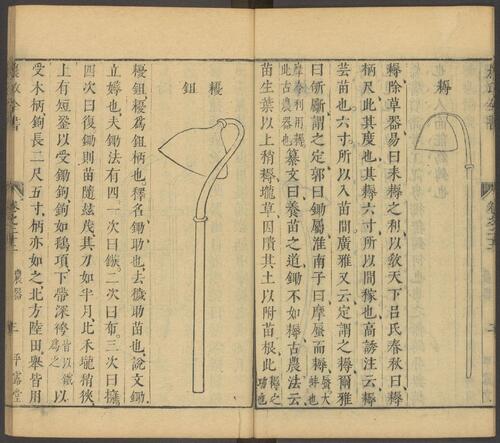 耨
耨除草器易曰耒耨之利以敎天下呂氏春秋曰耨
柄尺此其度也其耨六寸所以間稼也高誘注云耨
芸苗也六寸所以入苗間廣雅又云定謂之耨爾雅
曰斪斸謂之定郭曰鋤屬淮南子曰摩蜃而耨蜃大蛤也
摩令利用耨此古農器也纂文曰養苗之道鋤不如耨古農法云
苗生葉以上稍耨壠草因隤其土以附苗根此耨之功也
耰鉏
耰鉏耰爲鉏柄也釋名鋤助也去穢助苗也說文鋤
立薅也夫鋤法有四一次曰鏃二次曰布三次曰擁
四次曰復鋤則苗隨滋茂其刃如半月比禾壠稍狹
上有短銎以受鋤鉤鉤如鵝項下帶深袴皆以鐵爲之以
受木柄鉤長二尺五寸柄亦如之北方陸田舉皆用
農政全書 卷之二十二 農器 平露堂